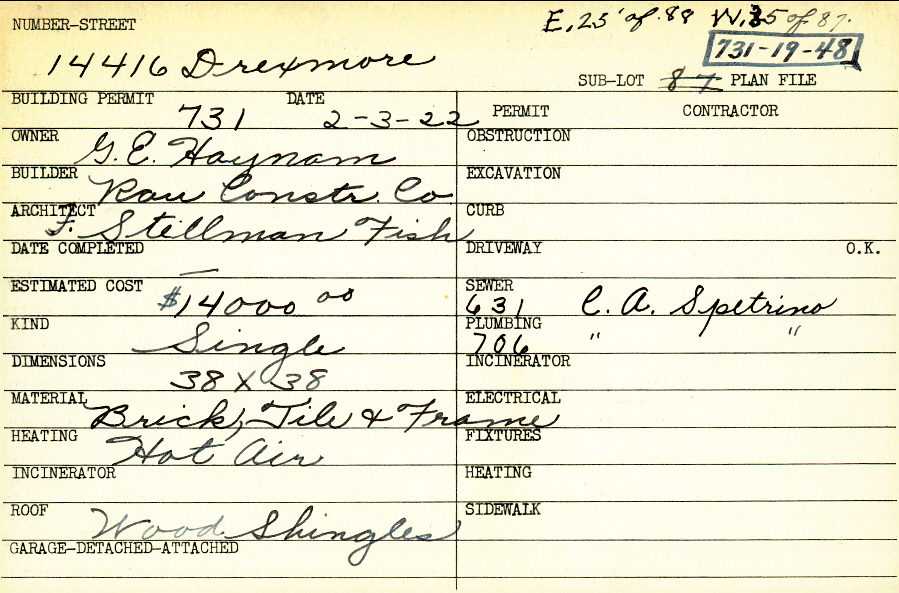 E. 25' of 88 W. 35 of 87.
NUMBER-STREET
731-19-48
14416 Drexmore
SUB-LOT 87 PLAN FILE
BUILDING PERMIT DATE PERMIT CONTRACTOR
731 2-3-22
OWNER G.E. Haynam OBSTRUCTION
BUILDER Rau Constr. Co. EXCAVATION
ARCHITECT F. Stillman Fish CURB
DATE COMPLETED — DRIVEWAY O.K.
ESTIMATED COST $14000 00 SEWER 631 C. A. Spetrino
KIND Single PLUMBING 706 " "
DIMENSIONS 38 X 38 INCINERATOR
MATERIAL Brick, Tile & Frame ELECTRICAL
HEATING Hot Air FIXTURES
INCINERATOR HEATING
ROOF Wood Shingles SIDEWALK
GARAGE-DETACHED-ATTACHED